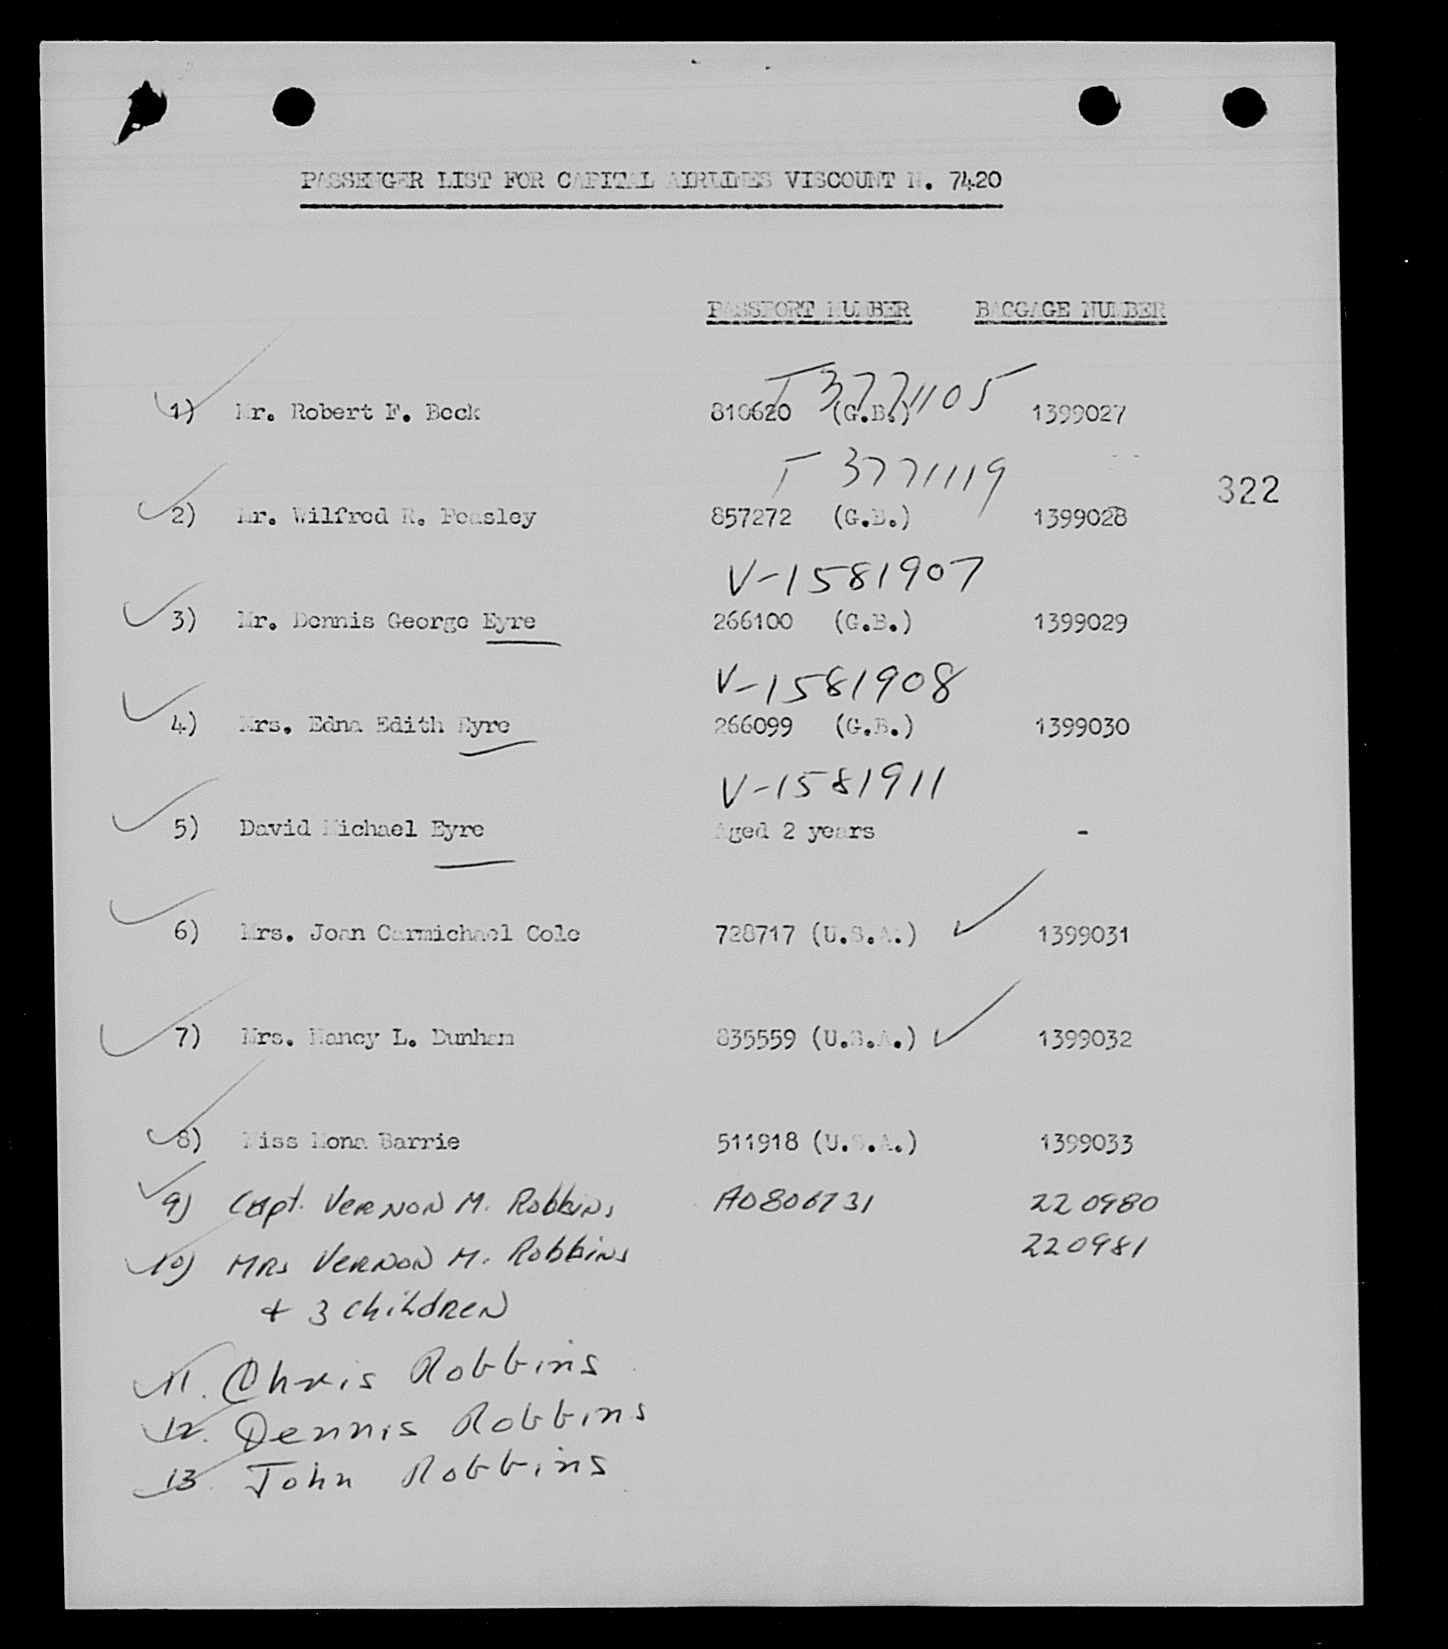 PASSENGER LIST FOR CAPITAL AIRLINES VISCOUNT N. 7420
PASSPORT NUMBER BAGGAGE NUMBER
T 3771105
1) Mr. Robert F. Beck 810620 (G.B.) 1399027
T 3771119
322
2) Mr. Wilfred R. Peasley 857272 (G.B.) 1399028
V-1581907
3) Mr. Dennis George Eyre 266100 (G.B.) 1399029
V-1581908
4) Mrs. Edna Edith Eyre 266099 (G.B.) 1399030
V-1581911
5) David Michael Eyre Aged 2 years -
6) Mrs. Joan Carmichael Cole 728717 (U.S.A.) 1399031
7) Mrs. Nancy L. Dunham 835559 (U.S.A.) 1399032
8) Miss Mona Barrie 511918 (U.S.A.) 1399033
9) Capt. VERNON M. Robbins AO806731 220980
220981
10) MRS VERNON M. Robbins
+ 3 children
11. Chris Robbins
12. Dennis Robbins
13 John Robbins